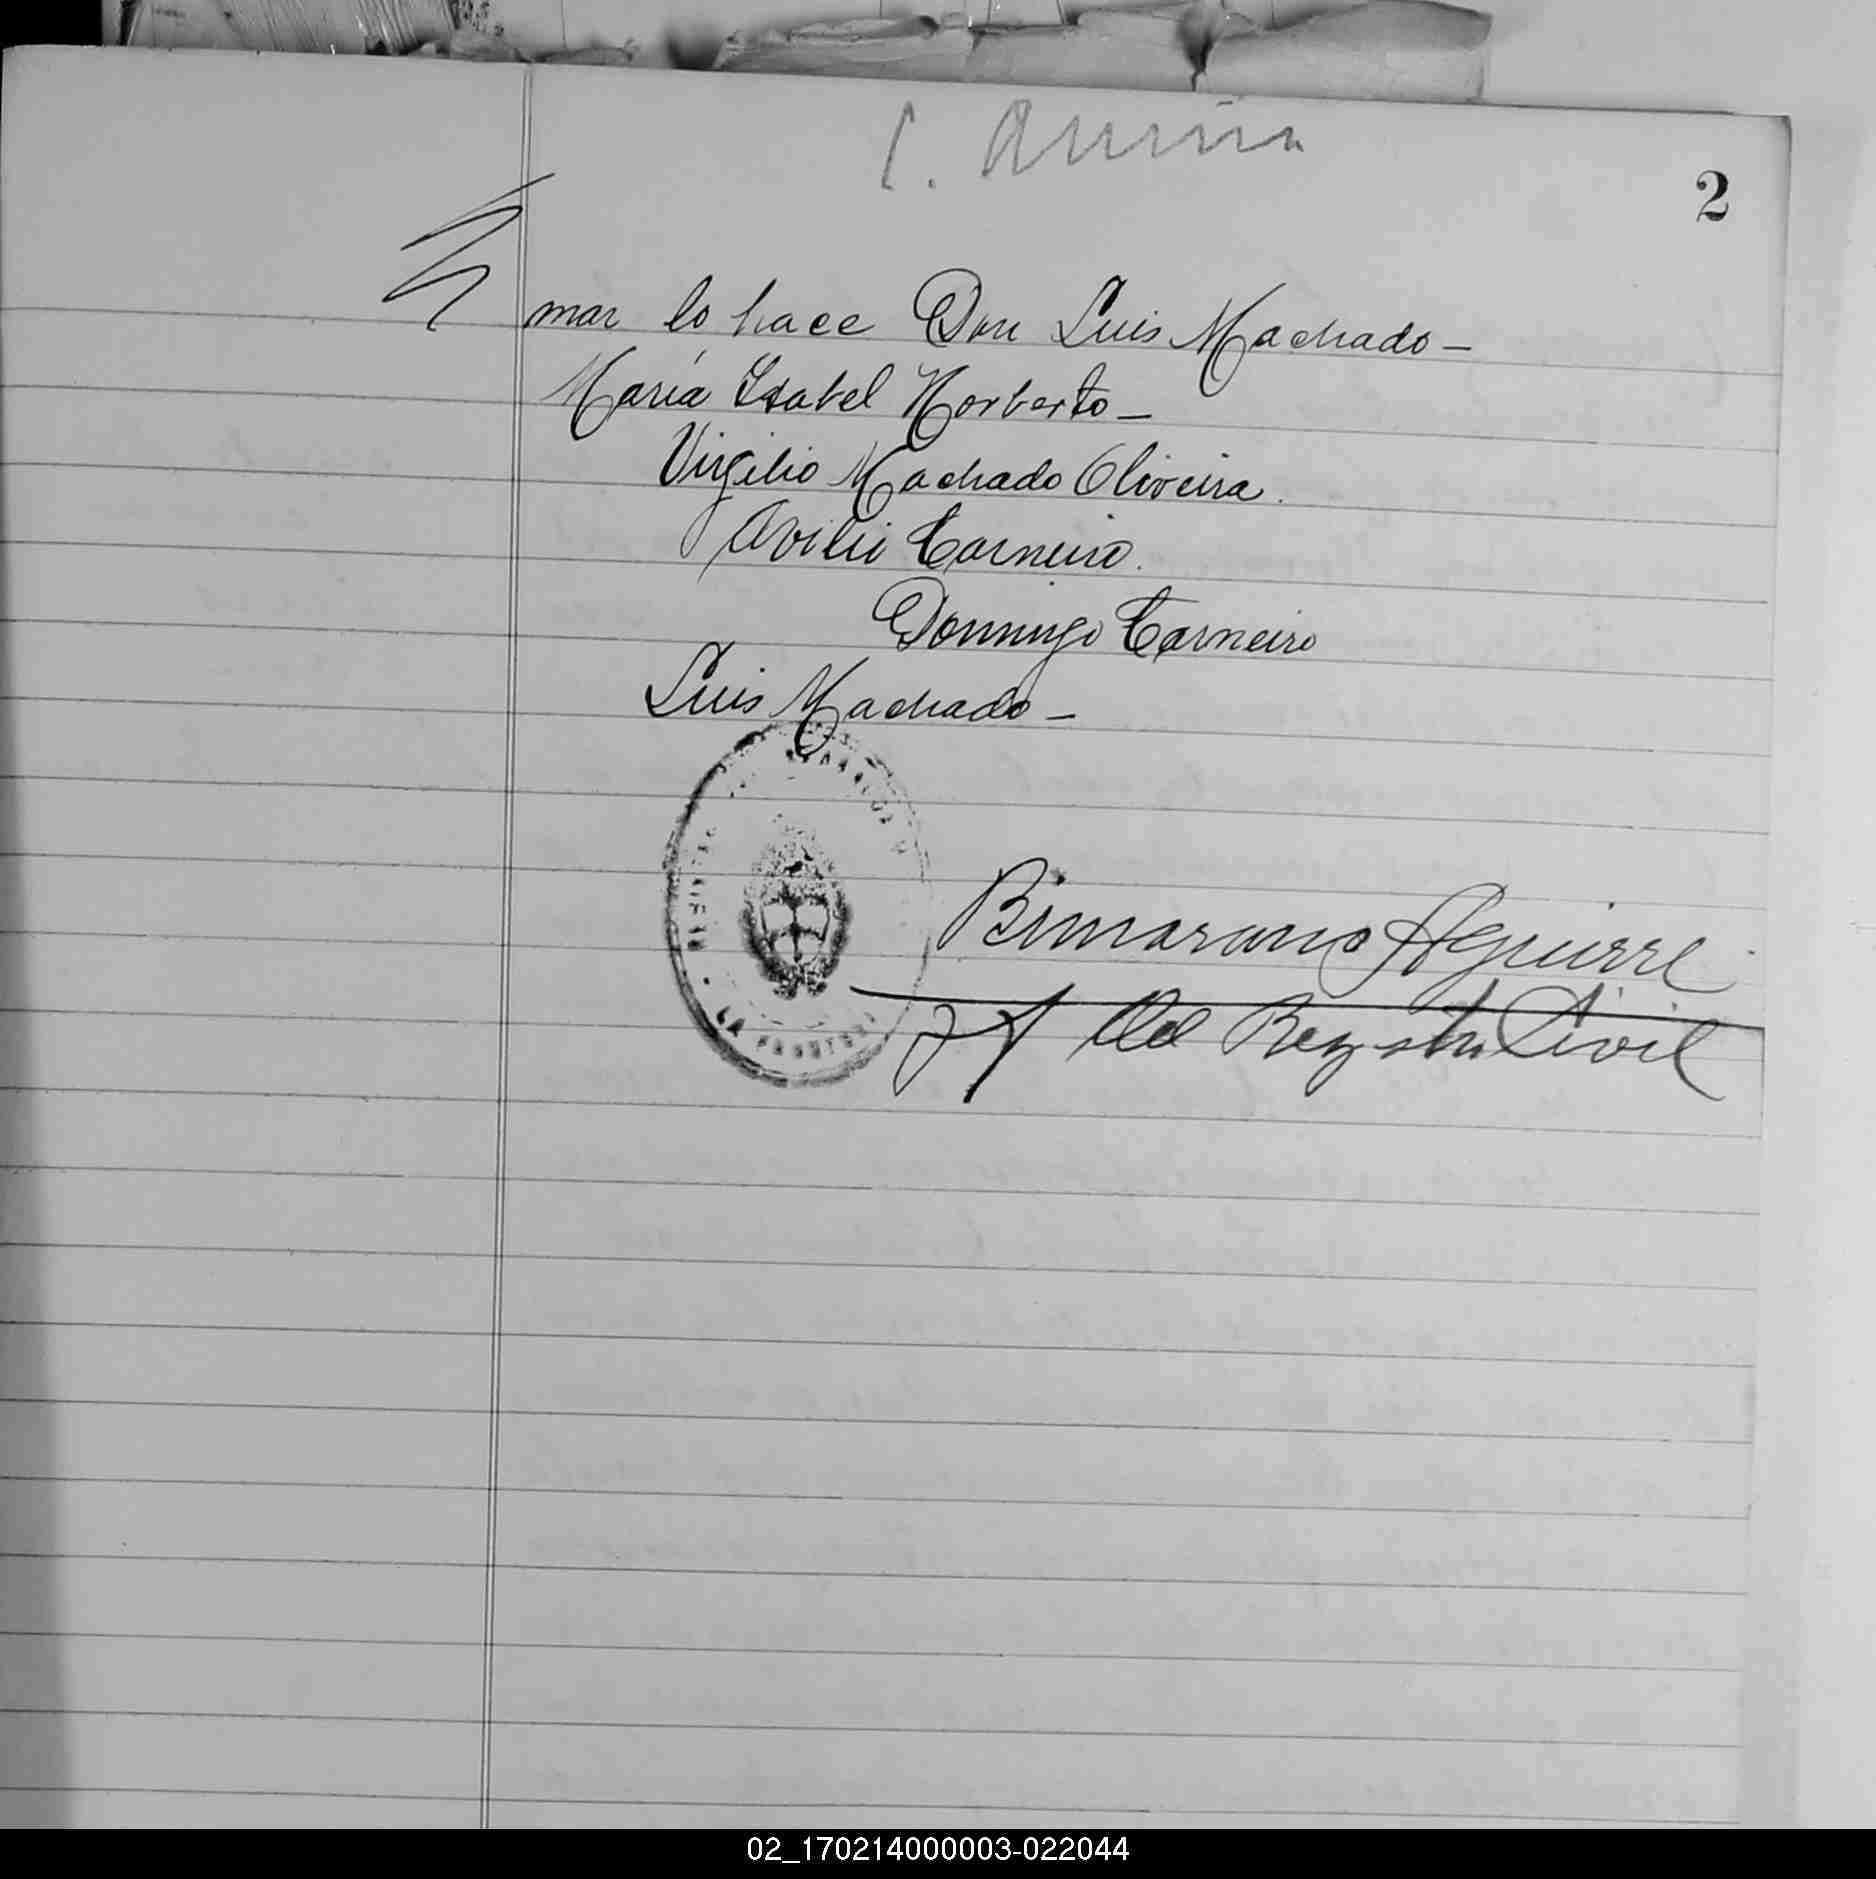 2
mar lo hace Don Luis Machado—
María Isabel Norberto—
Virgilio Machado Oliveira.
Avilio Carneiro.
Domingo Carneiro
Luis Machado—
LA
Aguirre
Jf del Registro Civil
02_170214000003-022044